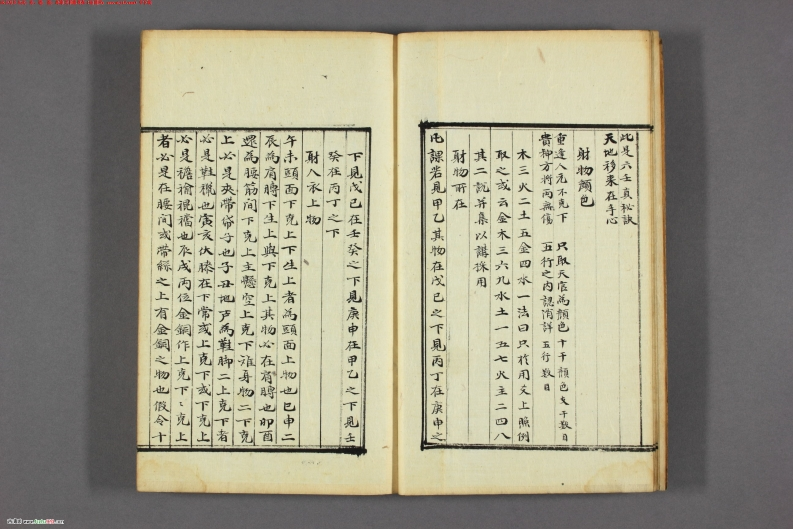 此是六壬真秘訣
天地移來在手心
射物顏色
重逢入元不克下　只取天官為顏色十干顏色支干數日
貴神方將兩無傷　五行之內認消詳五行數日
木三火二土五金四水一法曰只於用爻上照例
取之或云金木三六九水土一五七火主二四八
其二說并集以講採用
射物所在
凡課若見甲乙其物在戊己之下見丙丁在庚申之
下見戊己在壬癸之下見庚申在甲乙之下見壬
癸在丙丁之下
射人衣上物
午未頭面下克上下生上者為頭面上物也巳申二
辰為肩膊下生上與下克上其物必在肩膊也卯酉
還為腰筋間下克上主懸空上克下雖身物二下克
上必是夾帶袋子也子丑地戶為鞋脚二上克下者
必是鞋襪也寅亥伏膝在下常或上克下或下克上
必是襜褕襪襠也辰戌丙位金銅作上克下下克上
者必是在腰間或帶絲之上有金銅之物也假令十